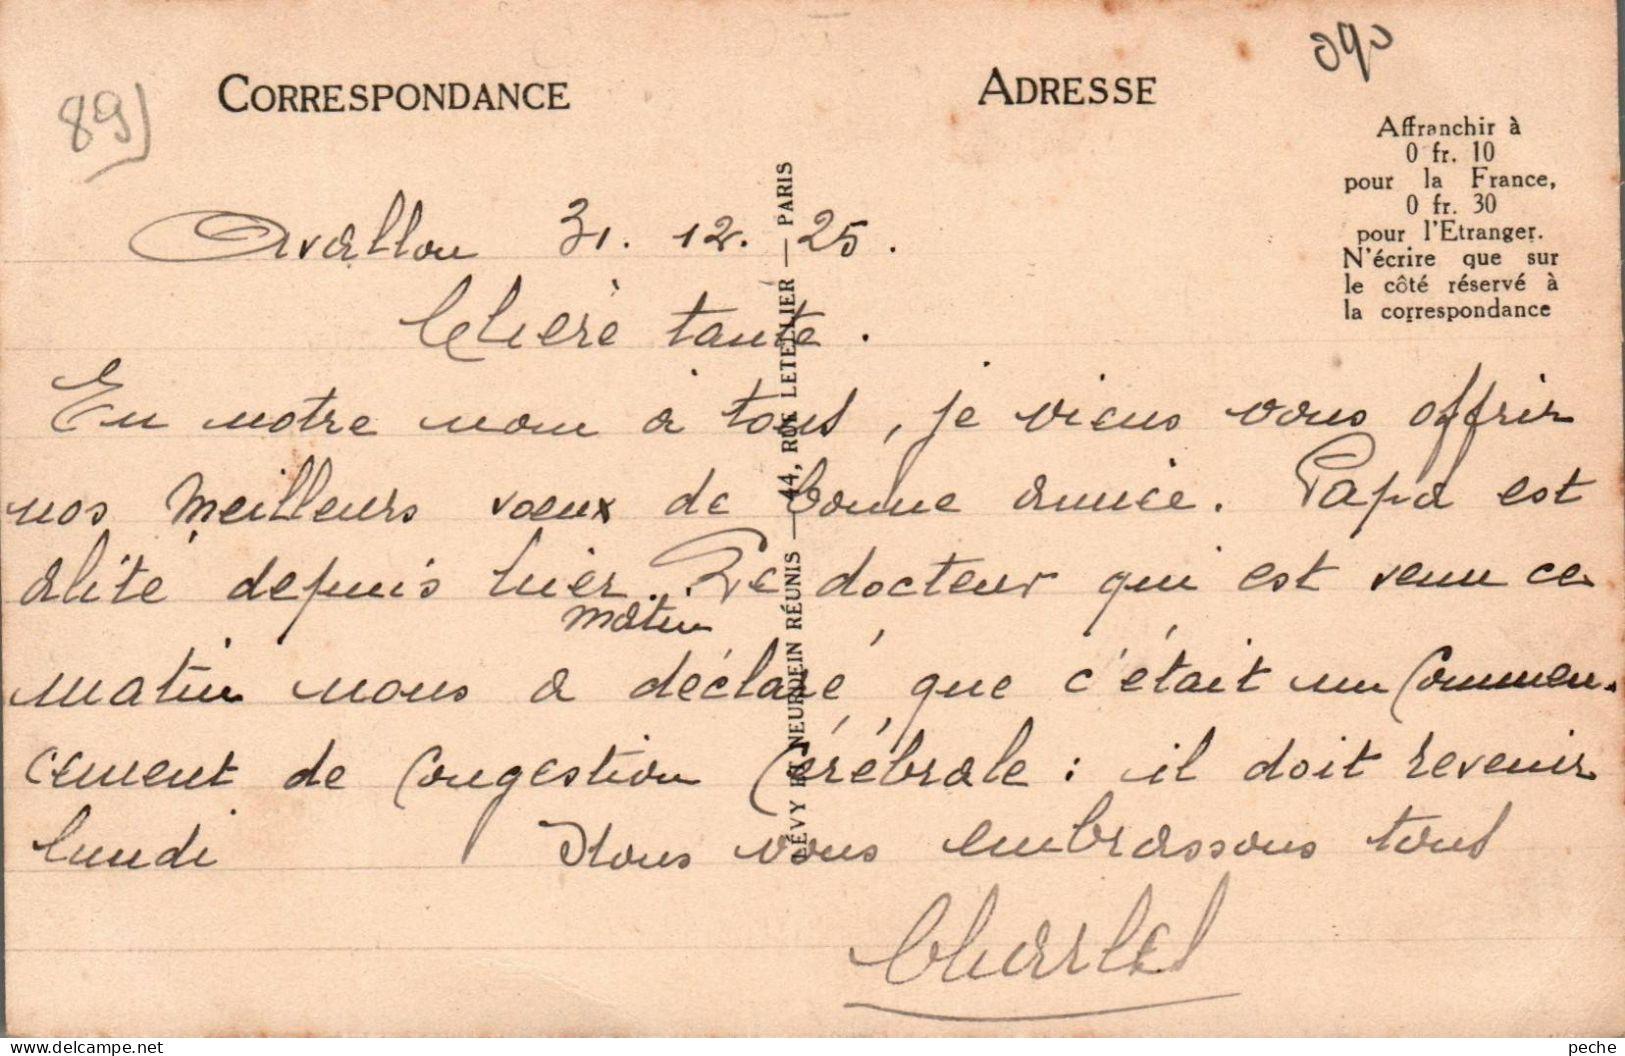 89)
CORRESPONDANCE
ADRESSE
Affranchir à
0 fr. 10
pour la France,
0 fr. 30
pour l'Etranger.
N'écrire que sur
le côté réservé à
la correspondance
LÉVY ET NEURDEIN RÉUNIS — 44, RUE LETELLIER — PARIS
Avallon 31. 12. 25.
Chère tante.
En notre nom à tous, je viens vous offrir
nos meilleurs voeux de bonne année. Papa est
alité depuis hier. Le docteur qui est venu ce
matin
matin nous a déclaré que c'était un commen-
cement de congestion cérébrale : il doit revenir
lundi Nous vous embrassons tous
Charles
peche